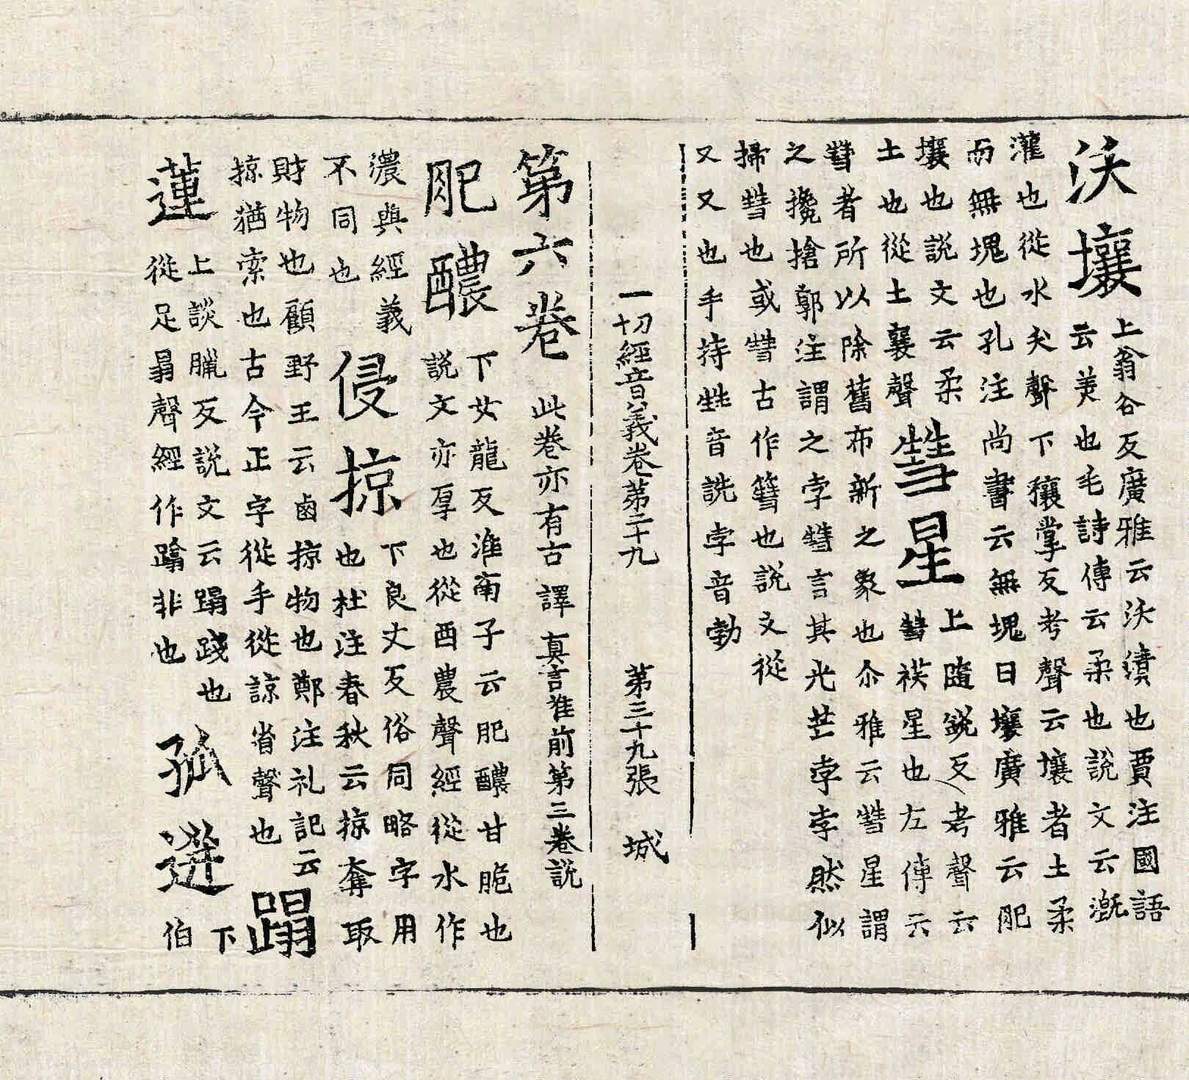 沃壤
上翁谷反廣雅云沃漬也賈注國語
云美也毛詩傳云柔也說文云漑
灌也從水夭聲下穰掌反考聲云壤者土柔
而無塊也孔注尚書云無塊曰壤廣雅云肥
壤也說文云柔
土也從土襄聲
彗星
上隨銳反考聲云
彗祅星也左傳云
彗者所以除舊布新之象也尒雅云彗星謂
之攙搶郭注謂之孛彗言其光芒孛孛然似
掃彗也或彗古作篲也說文從
又又也手持甡音詵孛音勃
一切經音義卷第三十九 第三十九張 城
第六卷
此卷亦有古譯真言准前第三卷說
肥醲
下女龍反淮南子云肥醲甘脆也
說文亦厚也從酉農聲經從水作
濃與經義
不同也
侵掠
下良丈反俗同略字用
也杜注春秋云掠奪取
財物也顧野王云鹵掠物也鄭注礼記云
掠猶索也古今正字從手從諒省聲也
蹋
蓮
上談臘反說文云蹋踐也
從足𦐇聲經作蹹非也
孤遊
下
伯